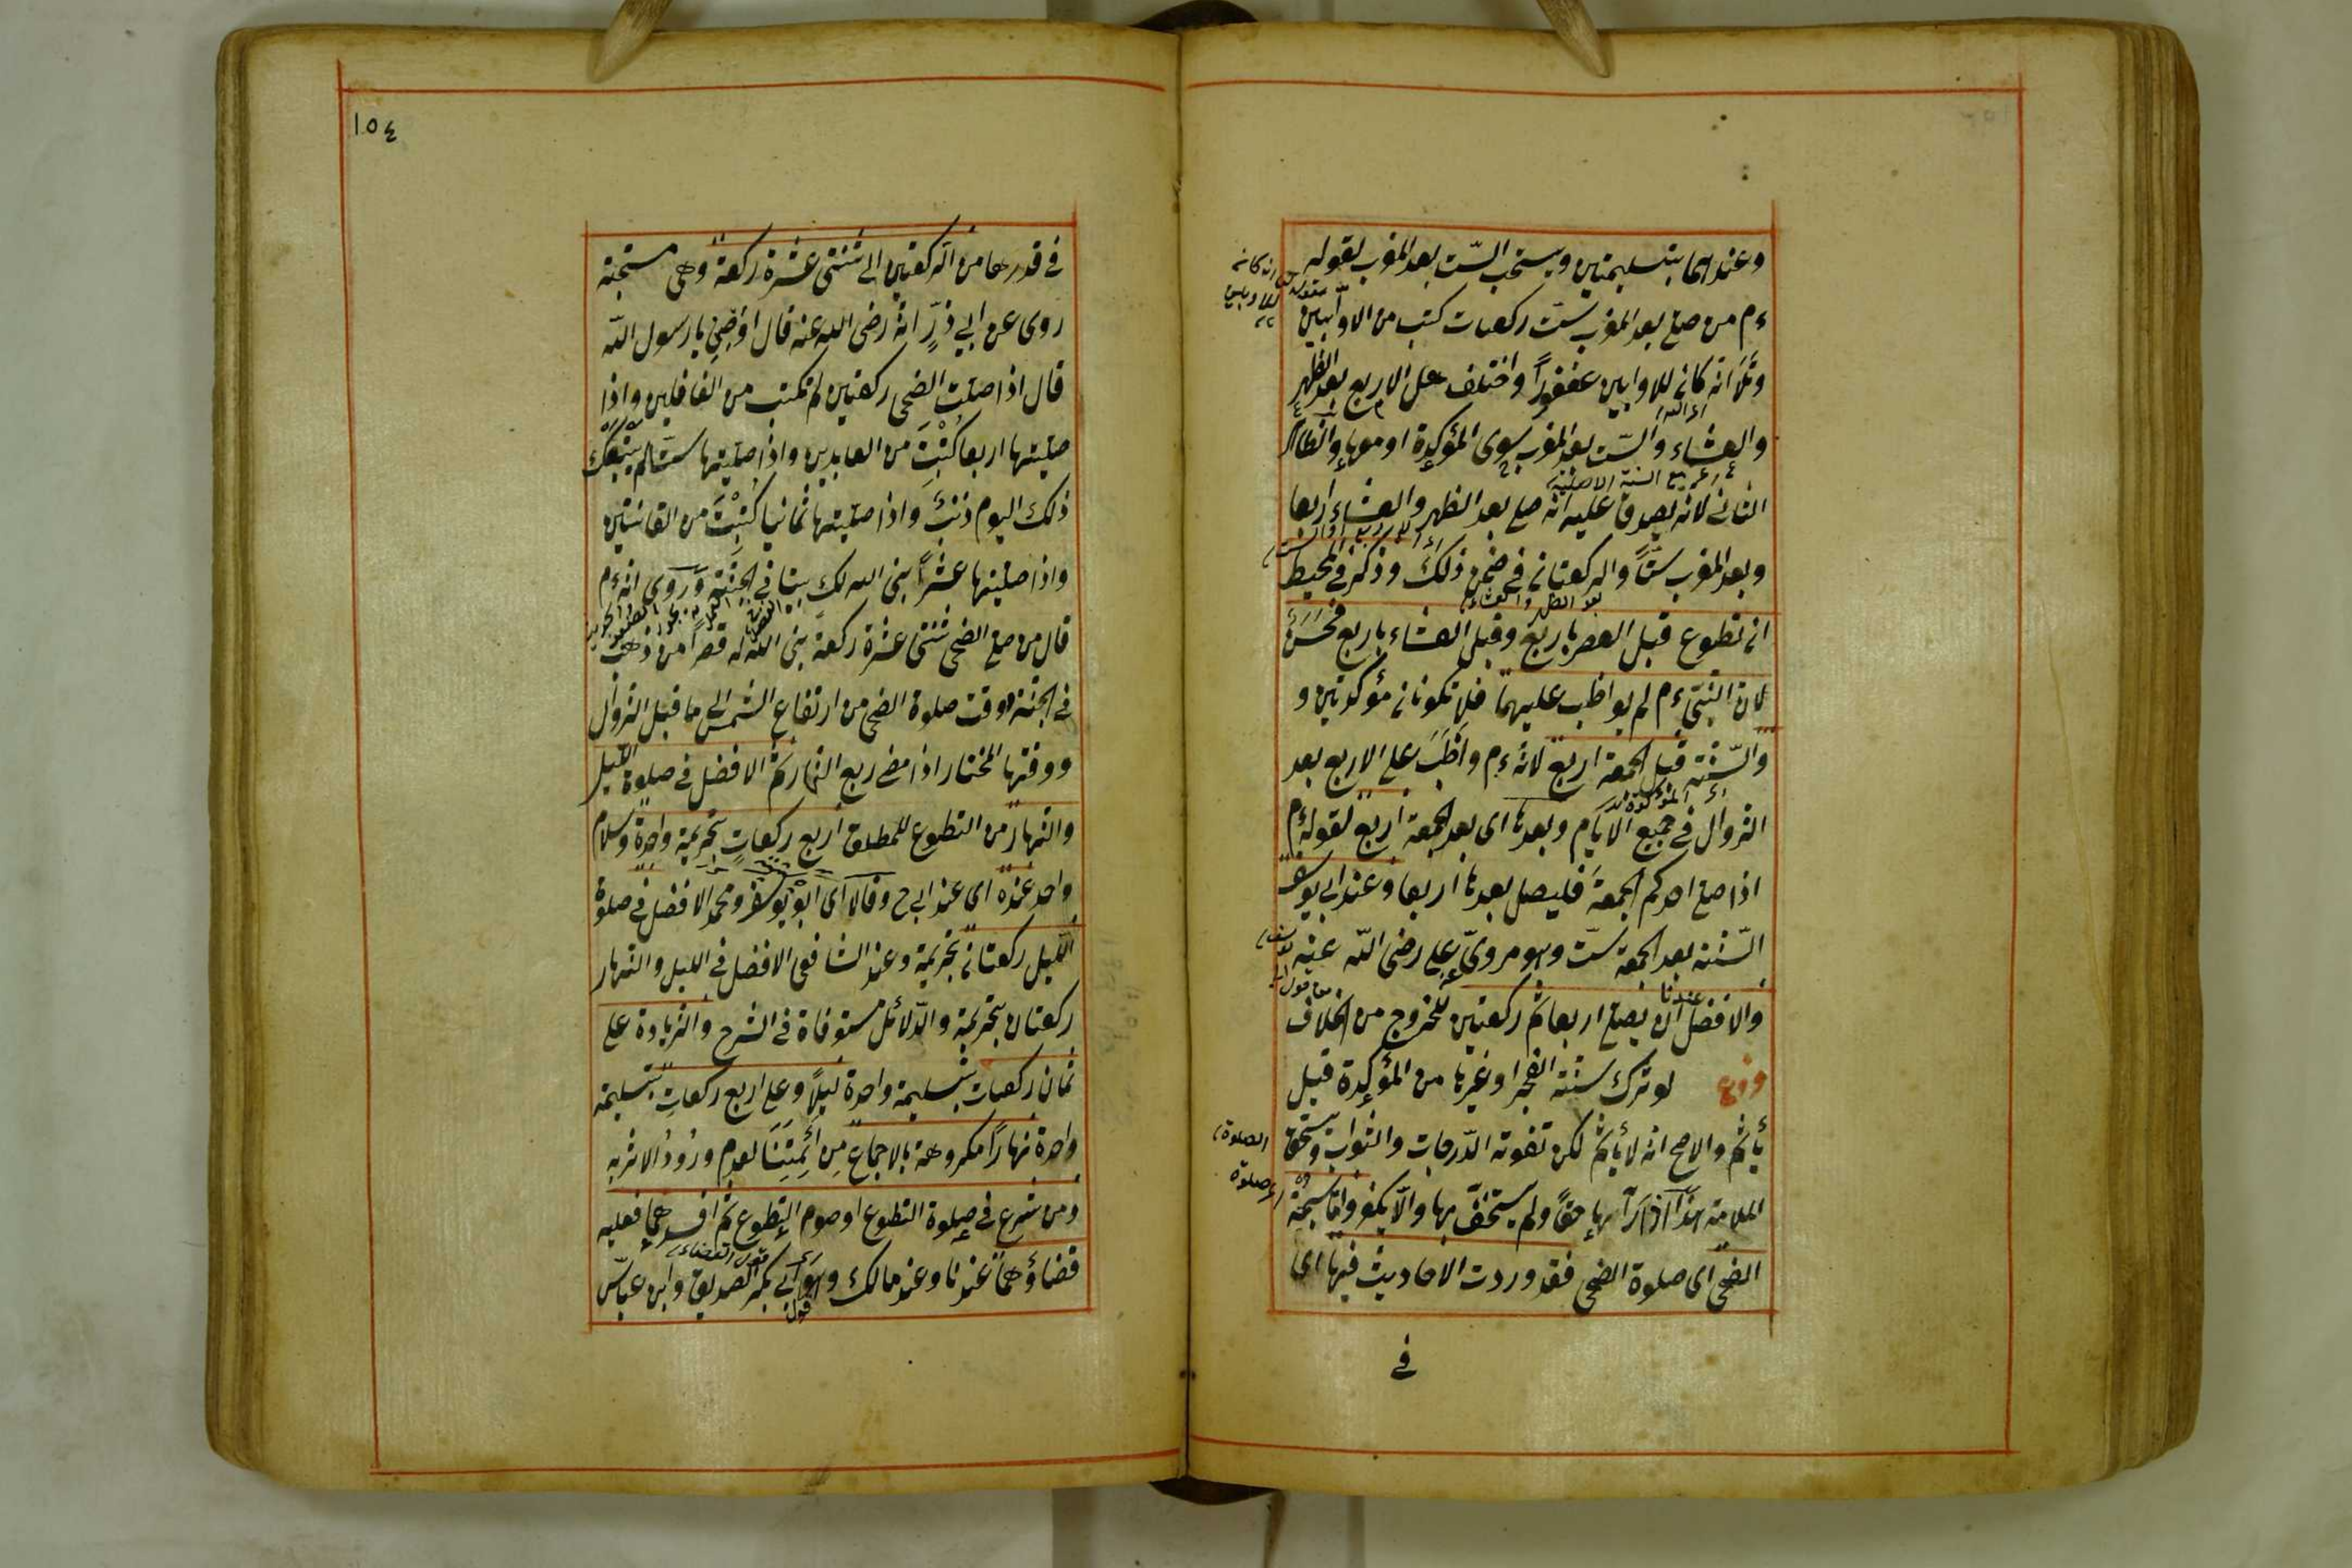 وعندهما بتسليمتين ويستحب الستّ بعد المغرب لقوله
ءم من صلى بعد المغرب ستّ ركعات كتب من الاوّابين
وتلا انه كان للاوابين غفوراً واختلف هل الاربع بعد الظهر
والعشاء والستّ بعد المغرب سوى المؤكدة او معها والظاهر
الثاني لانه يصدق عليه انه صلى بعد الظهر والعشاء اربعا
وبعد المغرب ستّاً والركعتان في ضمن ذلك وذكر في المحيط
ان تطوع قبل العصر باربع وقبل العشاء باربع فحسن
لان النبيّ ءم لم يواظب عليهما فلا تكونان مؤكدتين و
والسّنّة قبل الجمعة اربع لانه ءم واظب على الاربع بعد
الزوال في جميع الايام وبعدها اى بعد الجمعة اربع لقوله ءم
اذا صلى احدكم الجمعة فليصل بعدها اربعا وعند ابي يوسف
السّنّة بعد الجمعة ستّ وهو مرويّ عن على رضى اللّه عنه
والافضل عندنا ان يصلى اربعا ثم ركعتين للخروج من الخلاف
فروع لو ترك سنّة الفجر او غيرها من المؤكدة قيل
يأثم والاصح انه لا يأثم لكن تفوته الدّرجات والثواب ويستحق
الملامة هذا اذا رآها حقّاً ولم يستخفّ بها والّا يكفر واما سبحة
الضحى اى صلوة الضحى فقد وردت الاحاديث فيها اى
انه كان
للاوابين
الصلوة
اى صلوة
في
١٥٤
في قدرها من الركعتين الى ثنتى عشرة ركعة وهى مستحبة
روى عن ابي ذرّ انه رضى الله عنه قال اوصني يا رسول اللّه
قال اذا صليت الضحى ركعتين لم تكتب من الغافلين واذا
صليتها اربعا كُتِبْتَ من العابدين واذا صليتها ستّا لم يتبعك
ذلك اليوم ذنبٌ واذا صليتها ثمانيا كُتِبْتَ من القانتين
واذا صليتها عشراً بنى الله لك بيتا في الجنّة وروى انه ءم
قال من صلى الضحى ثنتى عشرة ركعة بنى اللّه له قصراً من ذهب
في الجنّة ووقت صلوة الضحى من ارتفاع الشمس الى ما قبل الزوال
ووقتها المختار اذا مضى ربع النهار ثمّ الافضل في صلوة الليل
والنهار من التطوع المطلق اربع ركعاتٍ بتحريمة واحدة وسلام
واحد عنده اى عند ابى ح وقالا اى ابو يوسف ومحمد الافضل في صلوة
اللّيل ركعتان بتحريمة وعند الشافعى الافضل في الليل والنهار
ركعتان بتحريمة والدّلائل مستوفاة في الشرح والزيادة على
ثمان ركعات بتسليمة واحدة ليلاً وعلى اربع ركعاتٍ بتسليمة
واحدة نهاراً مكروهة بالاجماع مِن أئِمَّتِنَا لعدم ورُودُ الاثر به
ومن شرع في صلوة التطوع او صوم التطوع ثم افسدهما فعليه
قضاؤهما عندنا وعند مالك وهو قول ابي بكر الصديق وابن عبّاس